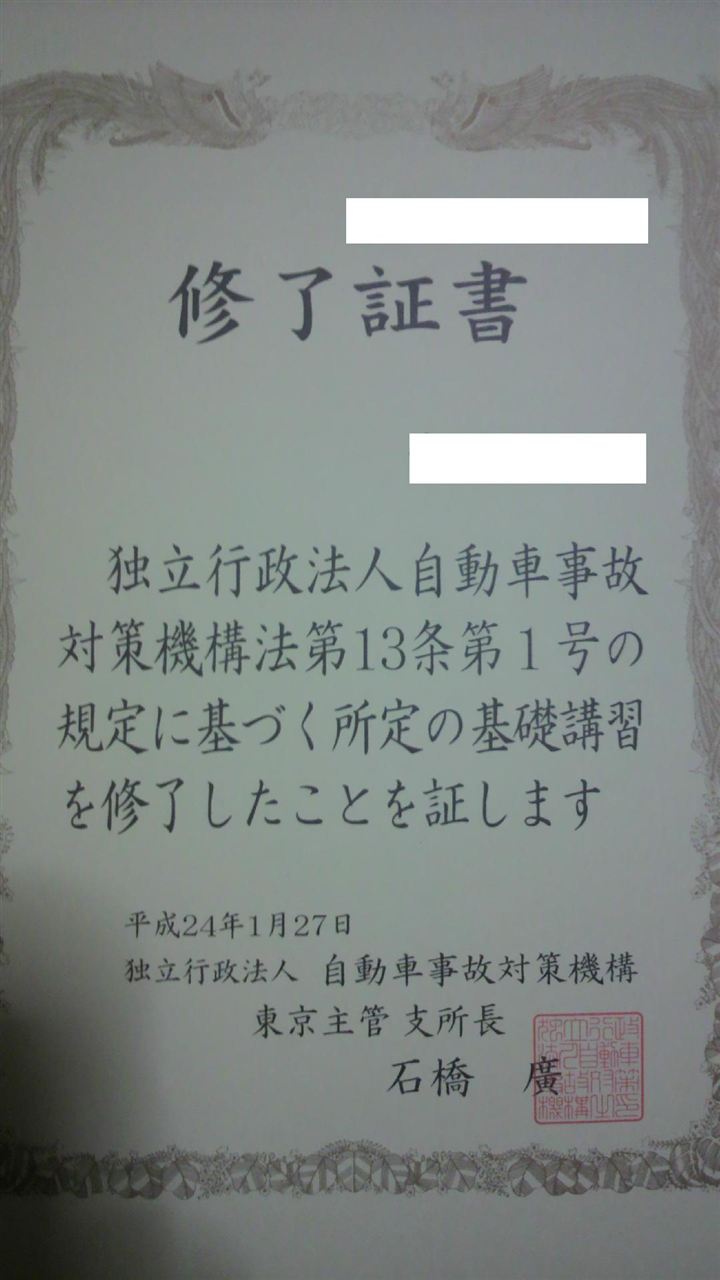 修了証書
独立行政法人自動車事故
対策機構法第13条第1号の
規定に基づく所定の基礎講習
を修了したことを証します
平成24年1月27日
独立行政法人 自動車事故対策機構
東京主管 支所長
石橋 廣